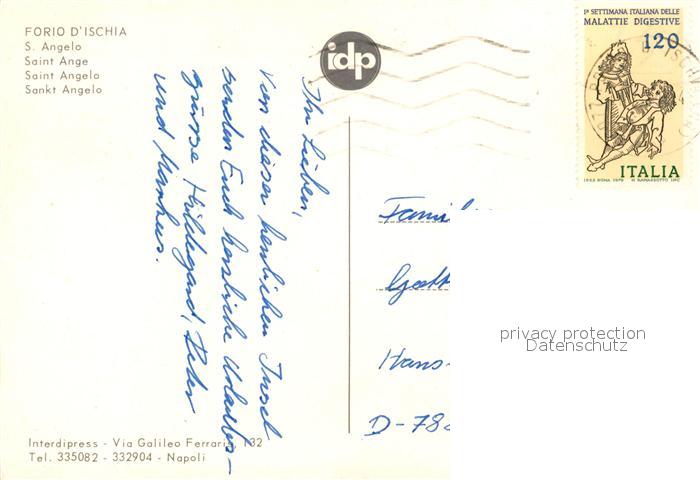 FORIO D'ISCHIA
S. Angelo
Saint Ange
Saint Angelo
Sankt Angelo
idp
1ª SETTIMANA ITALIANA DELLE
MALATTIE DIGESTIVE
120
ITALIA
Ihr Lieben,
Von dieser herrlichen Insel
senden Euch herzliche Urlaubs-
grüsse Hildegard, Peter
und Markus.
Famil
Gott
Hans-
D-78
privacy protection
Datenschutz
Interdipress - Via Galileo Ferraris, 132
Tel. 335082 - 332904 - Napoli